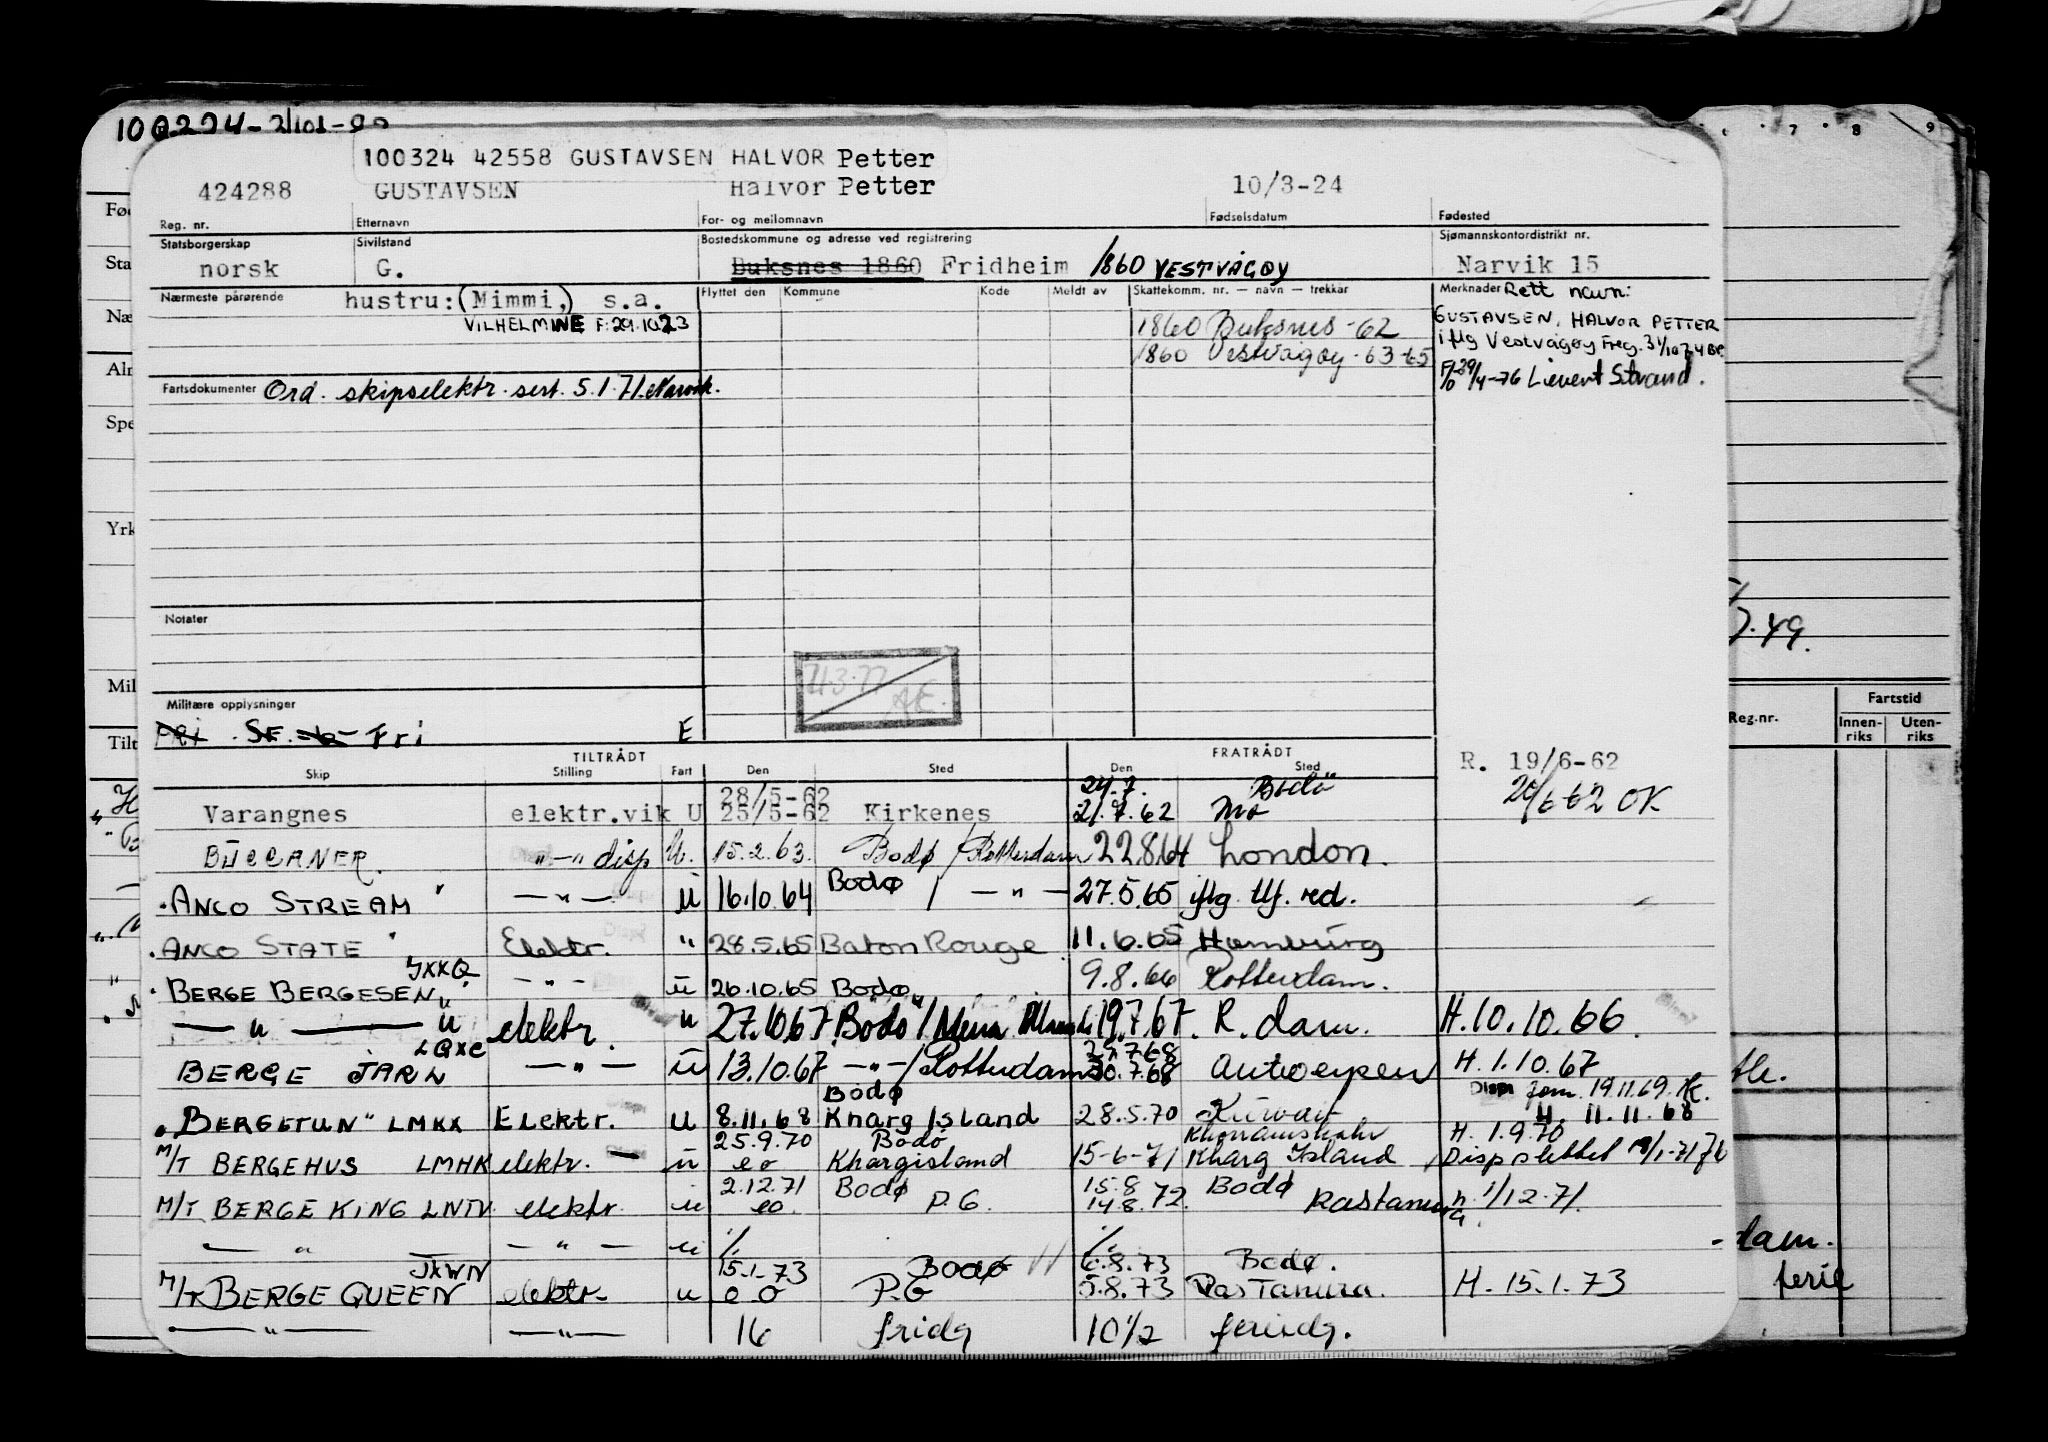 100324 42558 GUSTAVSEN HALVOR Petter
424288 GUSTAVSEN Halvor Petter 10/3-24
Reg. nr. Etternavn For- og mellomnavn Fødselsdatum Fødested
Statsborgerskap Sivilstand Bostedskommune og adresse ved registrering Sjømannskontordistrikt nr.
norsk G. Buksnes 1860 Fridheim 1860 VESTVÅGØY Narvik 15
Nærmeste pårørende hustru: (Mimmi,) s.a. Flyttet den Kommune Kode Meldt av Skattekomm. nr. — navn — trekkår Merknader Rett navn:
VILHELMINE F: 29.10.23 1860 Buksnes -62 GUSTAVSEN, HALVOR PETTER
1860 Vestvågøy - 63-65 iflg Vestvågøy Freg.
Fartsdokumenter Ord. skipselektr. sert. 5.1.71. Narvik. 29/4-76 Lievert Strand.
Notater
Militære opplysninger
Fri SF. Fri E
TILTRÅDT FRATRÅDT
Skip Stilling Fart Den Sted Den Sted R. 19/6-62
28/5-62 24.7. Bodö
Varangnes elektr.vik U 25/5-62 Kirkenes 21.7.62 Mo OK
BÜCCANER. "—" disp U. 15.2.63. Bodø / Rotterdam 22.8.64 London.
"ANCO STREAM" —"— ü 16.10.64 Bodø / —"— 27.5.65 iflg tlf. red.
"ANCO STATE" Elektr. " 28.5.65 Baton Rouge 11.6.65 Hamburg
JXXQ
"BERGE BERGESEN" —"— ü 26.10.65 Bodø 9.8.66 Rotterdam.
—"— elektr. u 27.10.67 Bodö / Mena 19.7.67. R. dam. H. 10.10.66.
LQXC 29.7.68
BERGE JARL —"— ü 13.10.67 —"—/Rotterdam 30.7.68 Antwerpen H. 1.10.67
Bodø 19.11.69.
"BERGETUN" LMKX Elektr. u 8.11.68 Kharg Island 28.5.70 Kuwait H. 11.11.68
25.9.70 Bodø Khorramshahr H. 1.9.70
M/T BERGEHUS LMHK elektr. ü eo Khargisland 15-6-71 Kharg Island Disp slettet
2.12.71 Bodø 15.8 Bodø
M/T BERGE KING LNTV elektr. u eo. P.G. 14.8.72. Rastanura 1/12.71.
—"— —"— u % %
JXWN 15.1.73 Bodø 6.8.73 Bodø.
M/T BERGE QUEEN elektr. u eo P.G 5.8.73 Ras Tanura. H. 15.1.73
—"— —"— 16 fridg 10 1/2 feriedg.
7 8 9
Fød
Sta
Næ
Alm
Spe
Yrk
Mil
Tilt
7.49.
Reg.nr. Fartstid
Innen-riks Uten-riks
dam.
ferie